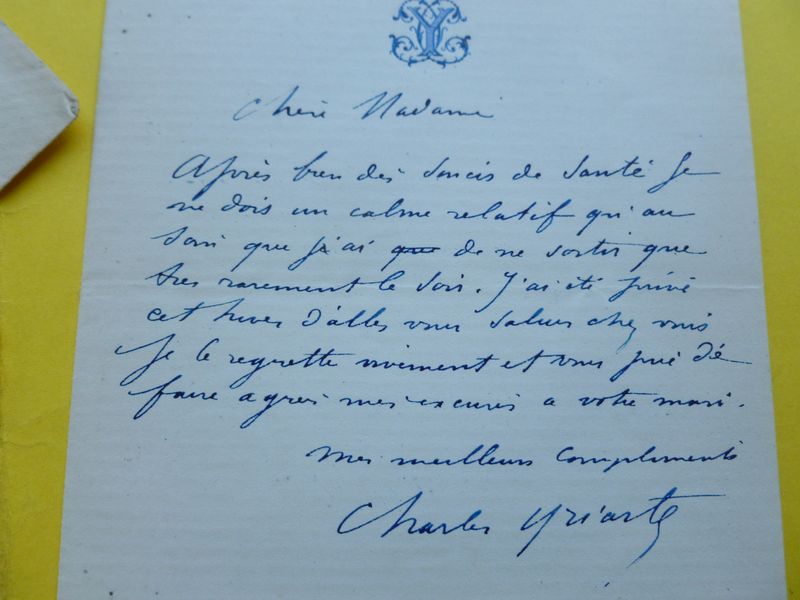 Chère Madame
Après bien des soucis de santé je
ne dois un calme relatif qu'au
soin que j'ai que de ne sortir que
très rarement le soir. J'ai été privé
cet hiver d'aller vous saluer chez vous
je le regrette vivement et vous prie de
faire agréer mes excuses a votre mari.
Mes meilleurs compliments
Charles Yriarte